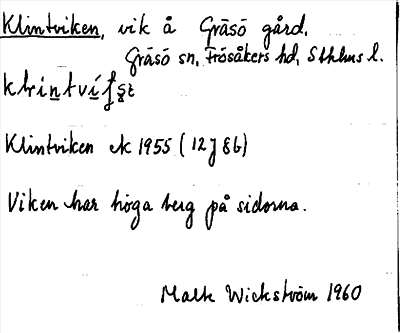 Klintviken, vik å Gräsö gård,
Gräsö sn, Frösåkers hd, Sthlms l.
Klintviken ek 1955 (12J8b)
Viken har höga berg på sidorna.
Wickström 1960